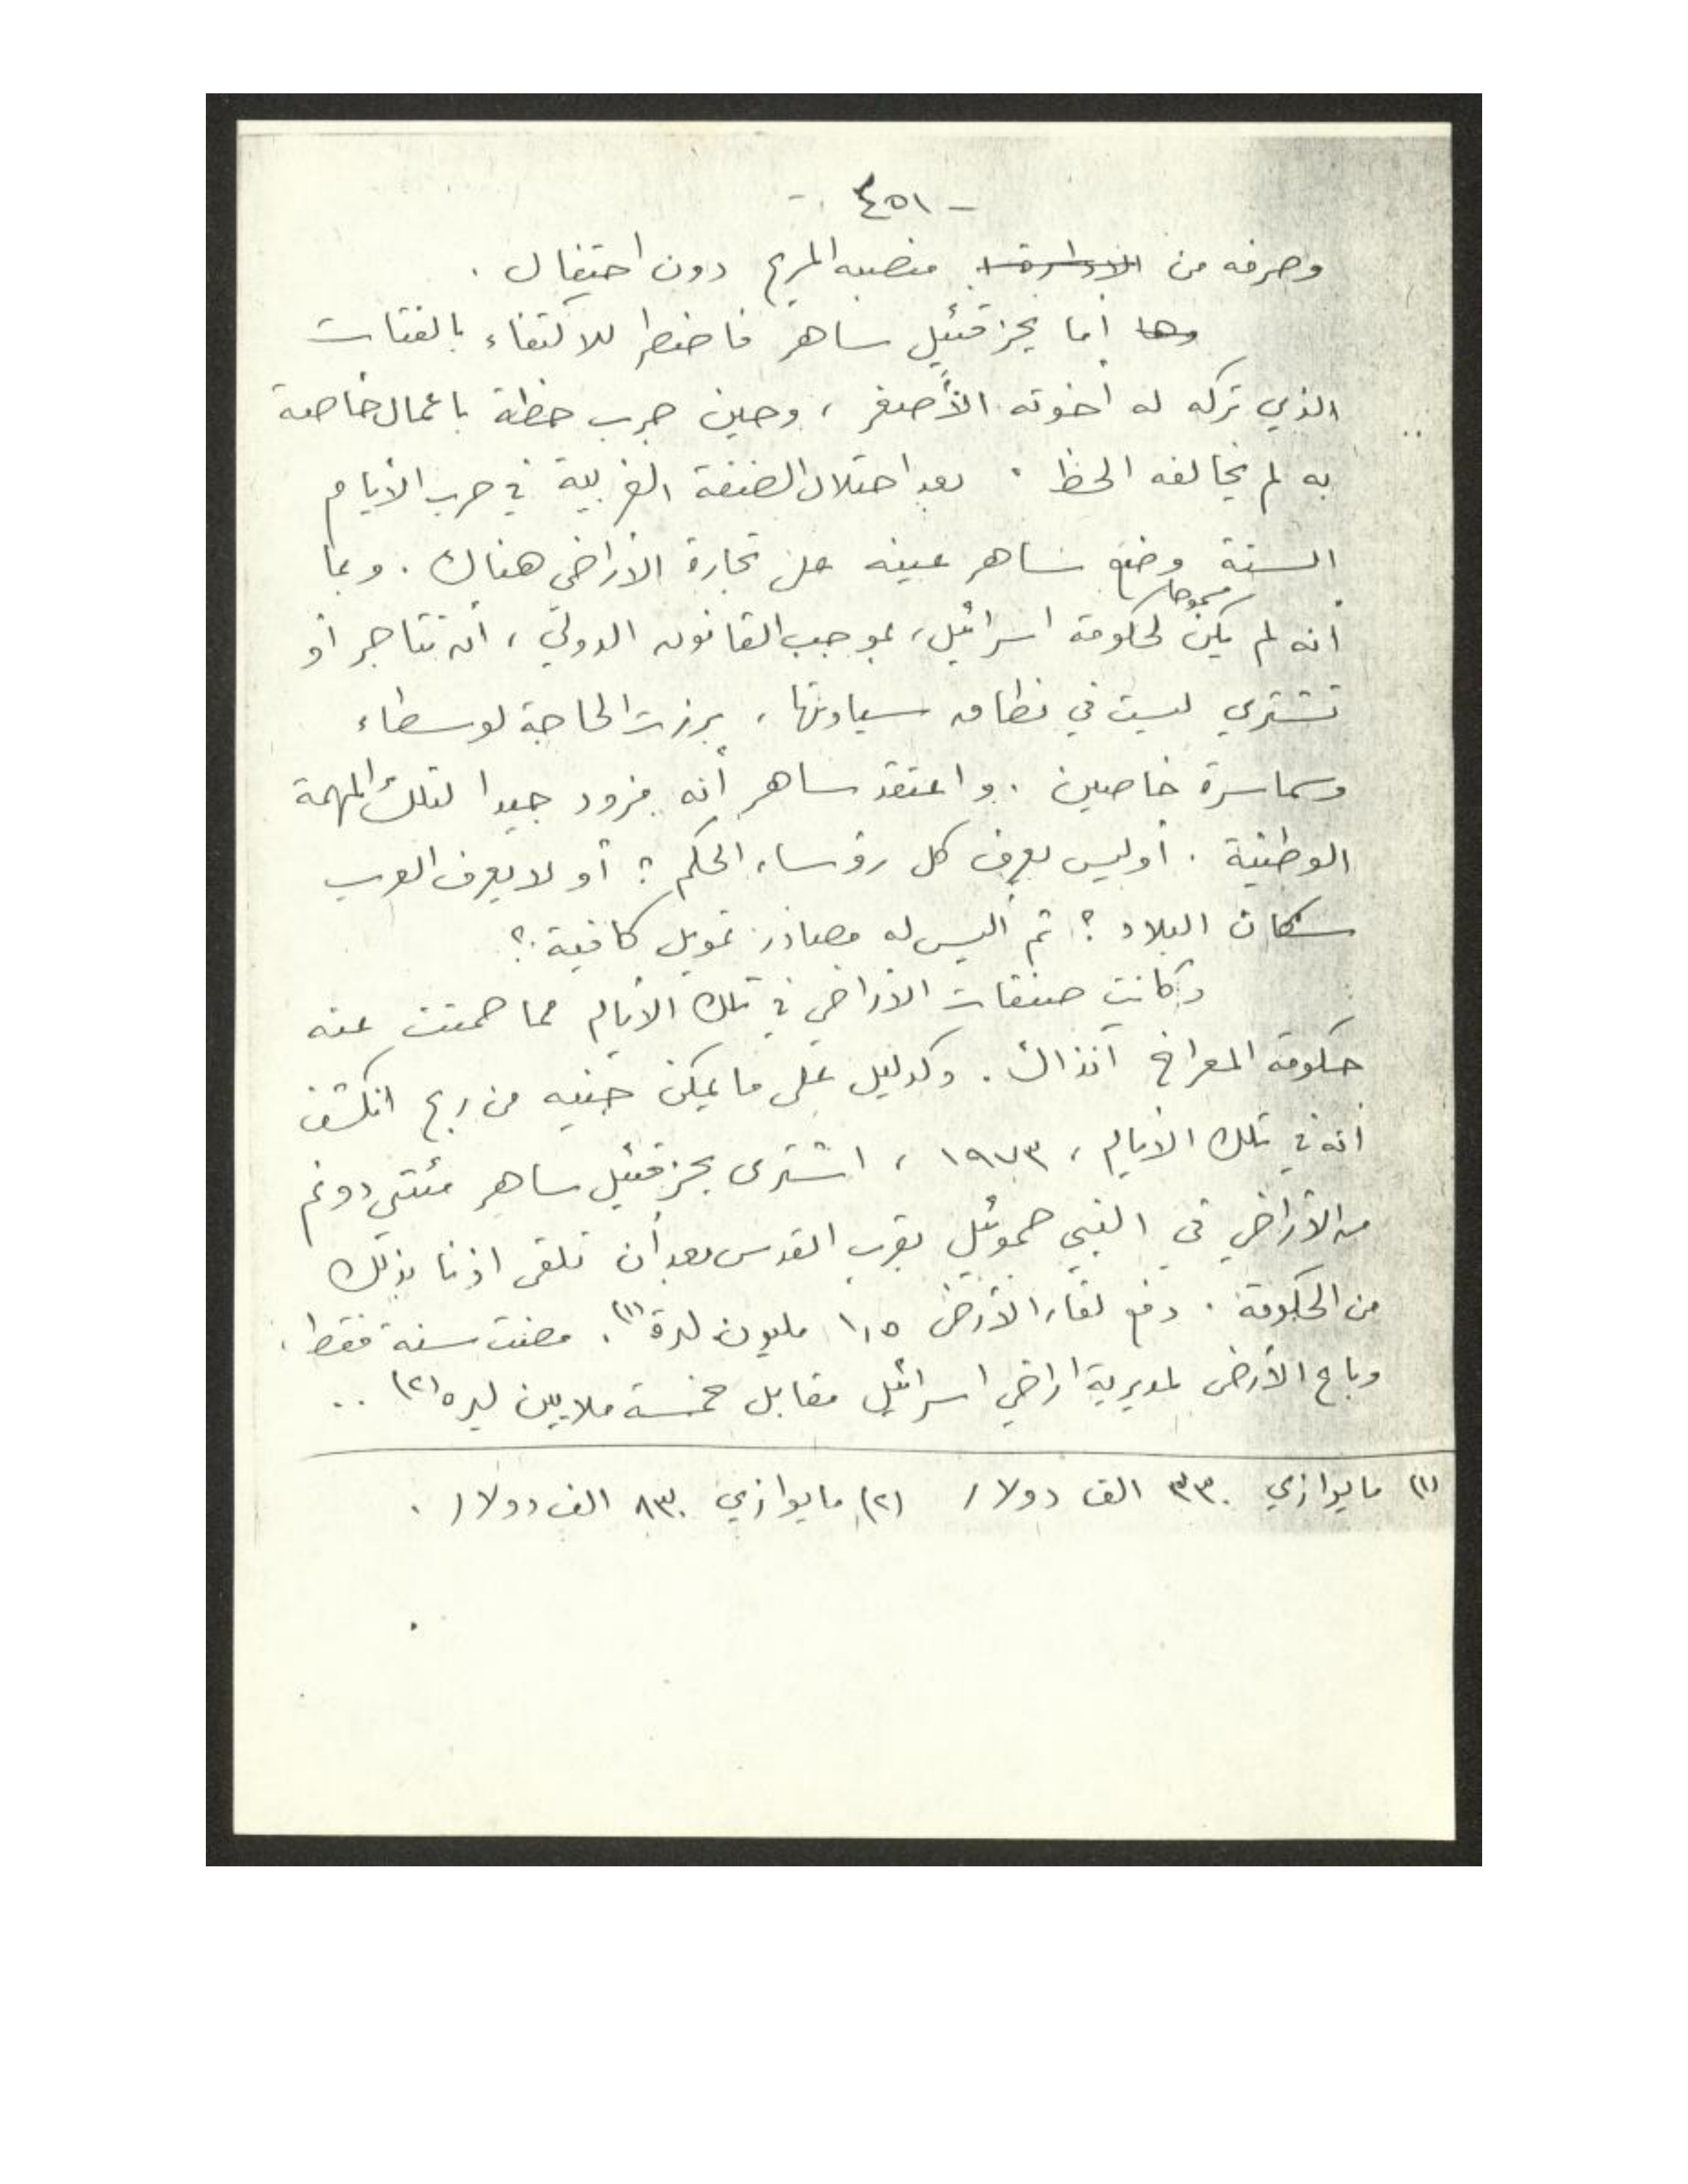 - ٤٥١ -
وصرفه من الادارة منصبه المريح دون احتفال .
وها أما يحزقئيل ساهر فاضطر للاكتفاء بالفتات
الذي تركه له اخوته الأصغر ، وحين جرب حظة باعمال خاصة
به لم يحالفه الحظ . بعد احتلال الضفة الغربية في حرب الأيام
الستة وضع ساهر عينه على تجارة الأراضي هناك . وبما
مسموحا
أنه لم يكن لحكومة اسرائيل ، بموجب القانون الدولي ، أن تتاجر أو
تشتري ليست في نطاق سيادتها ، برزت الحاجة لوسطاء
وسماسرة خاصين . واعتقد ساهر أنه مزود جيدا لتلك المهمة
الوطنية . أوليس يعرف كل رؤساء الحكم ؟ أو لا يعرف العرب
سكان البلاد ؟ ثم أليس له مصادر تمويل كافية ؟
وكانت صفقات الأراضي في تلك الأيام مما صمتت عنه
حكومة المعراخ آنذاك . وكدليل على ما يمكن جنيه من ربح انكشف
أنه في تلك الأيام ، ١٩٧٣ ، اشترى يحزقئيل ساهر مئتي دونم
من الأراضي في النبي صموئيل بقرب القدس بعد أن تلقى اذنا بذلك
من الحكومة . دفع لقاء الأرض ١,٥ مليون ليرة (١) . مضت سنة فقط ،
وباع الأرض لمديرية اراضي اسرائيل مقابل خمسة ملايين ليره (٢) ..
(١) ما يوازي ٣٣٠ الف دولار (٢) ما يوازي ٨٣٠ الف دولار .